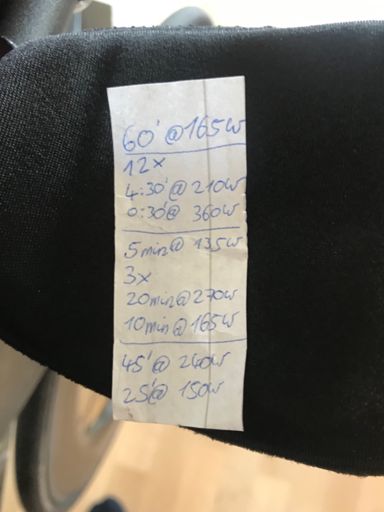 60' @ 165W
12x
4:30' @ 210W
0:30' @ 360W
5min @ 135W
3x
20min @ 270W
10min @ 165W
45' @ 240W
25' @ 150W